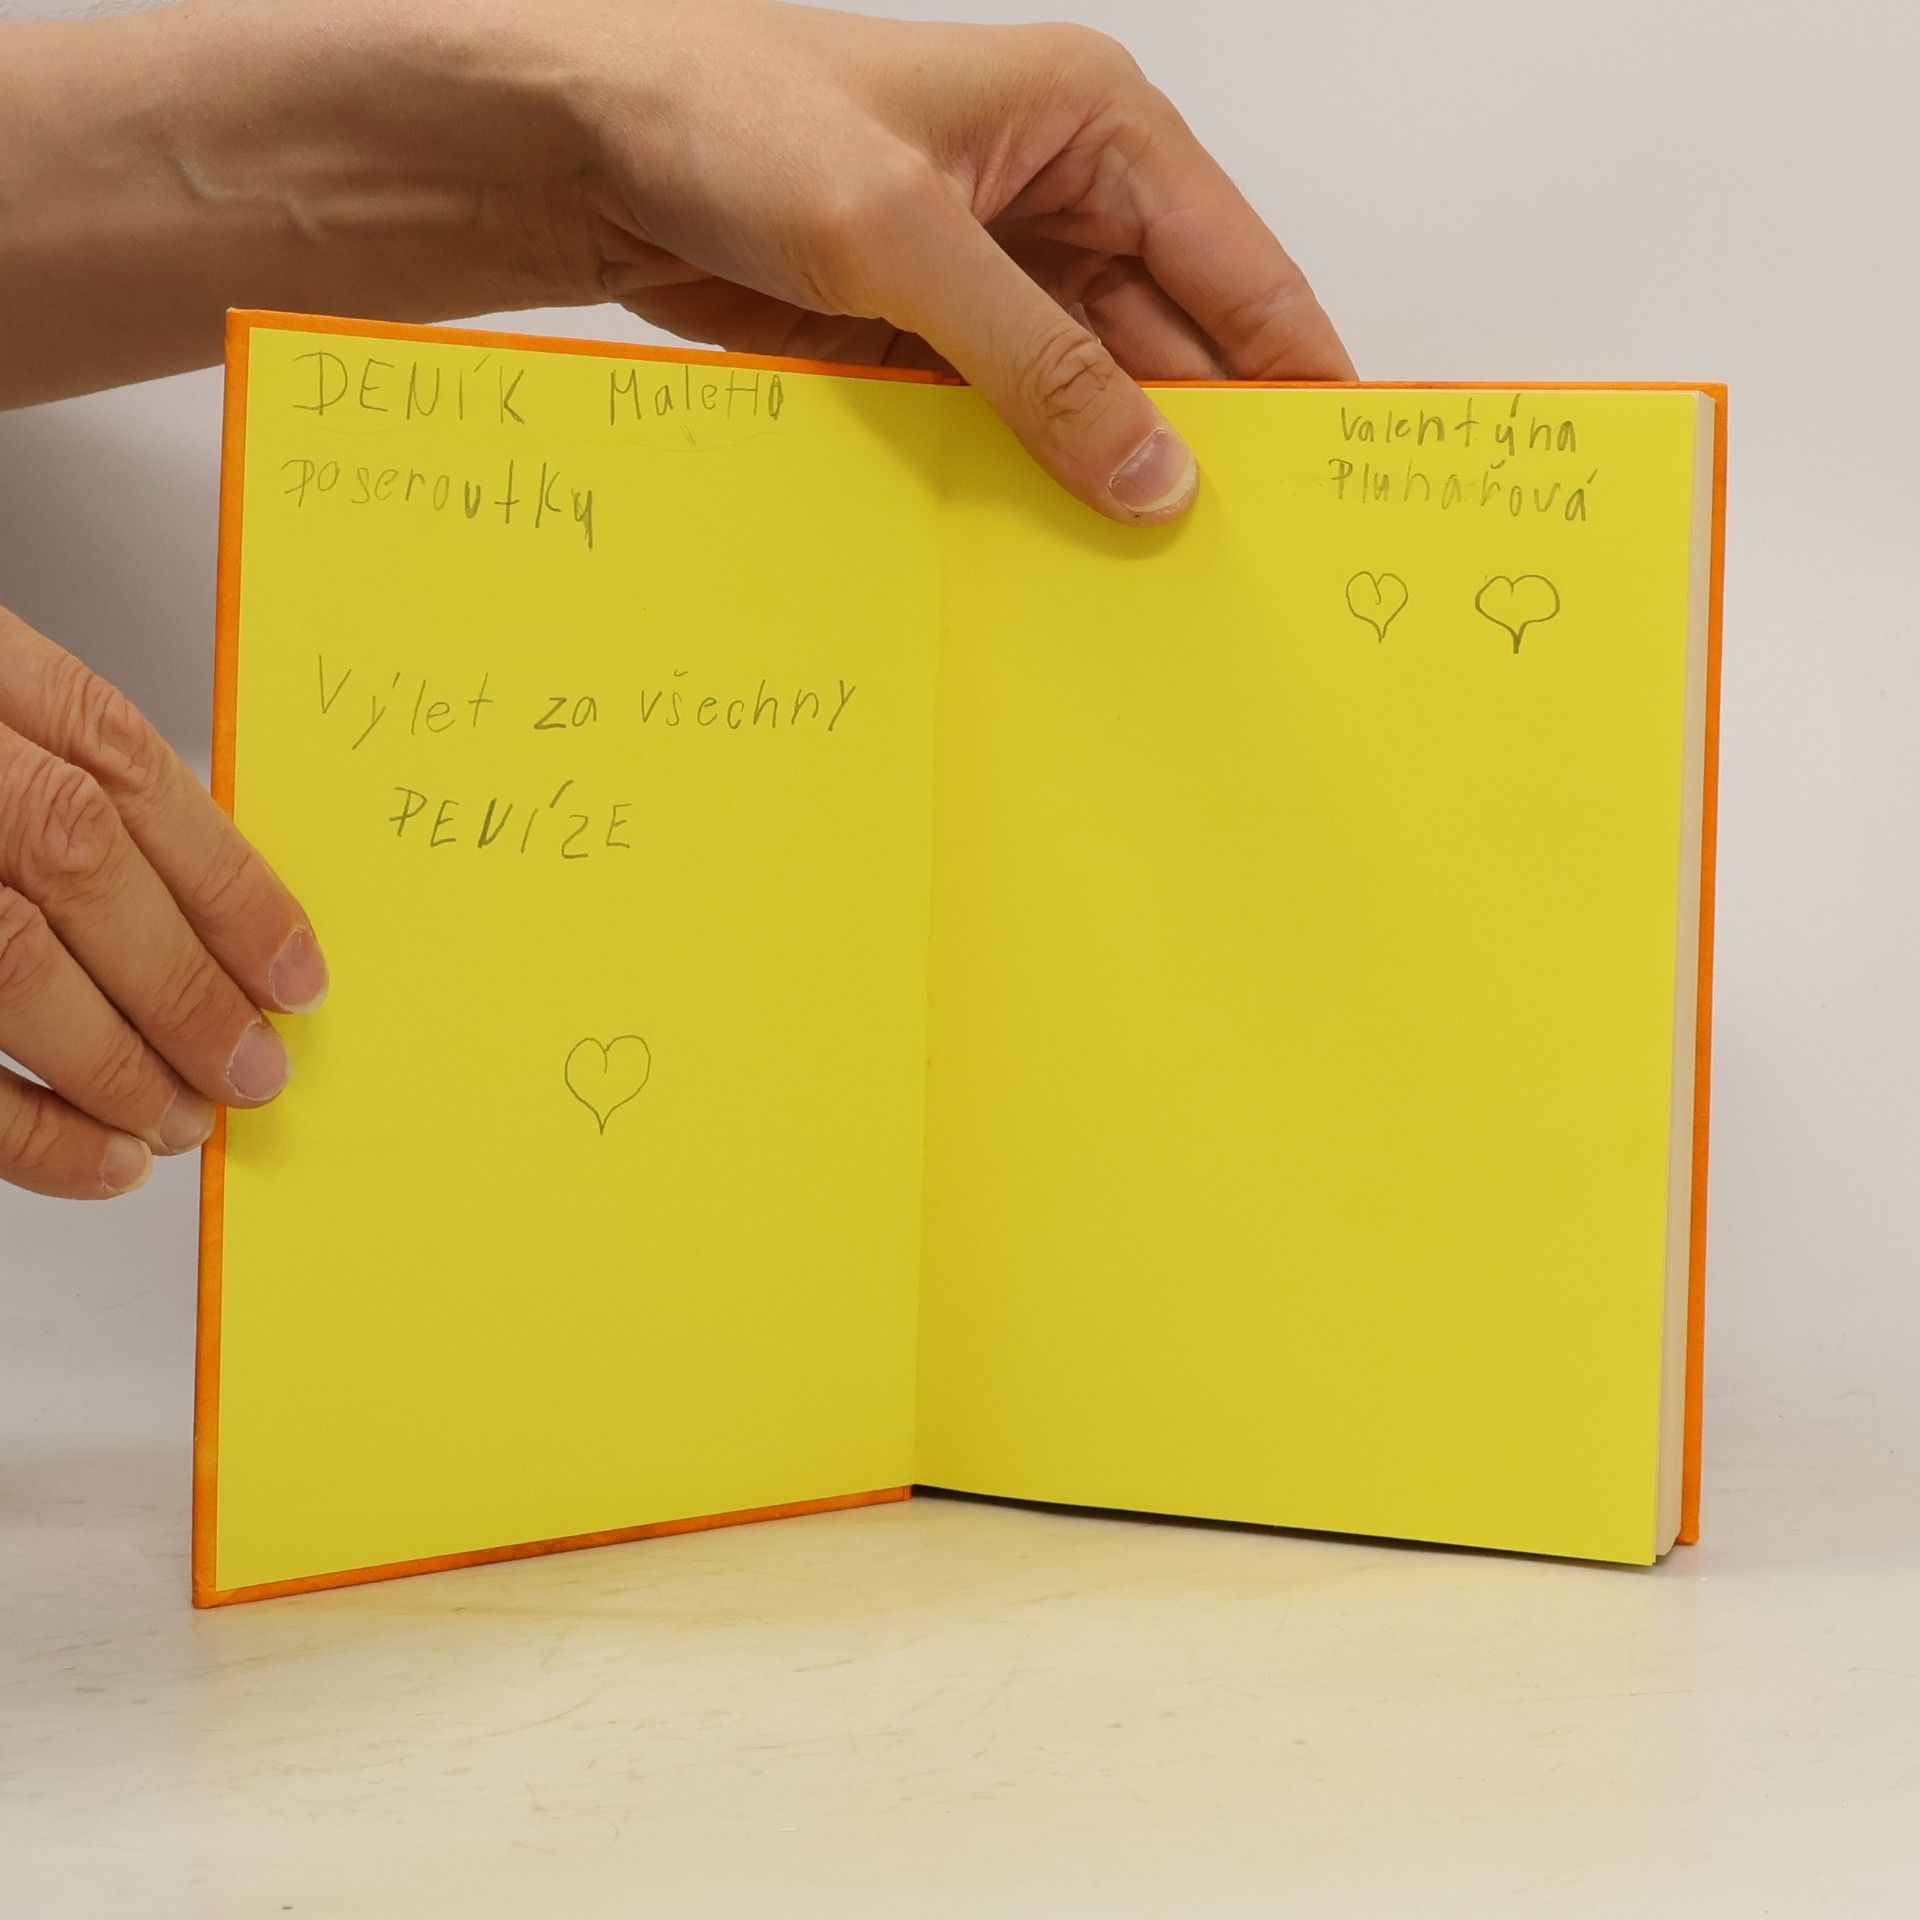 DENÍK MaleHo
poseroutky
Výlet za všechny
PENÍZE
Valentýna
Pluhařová